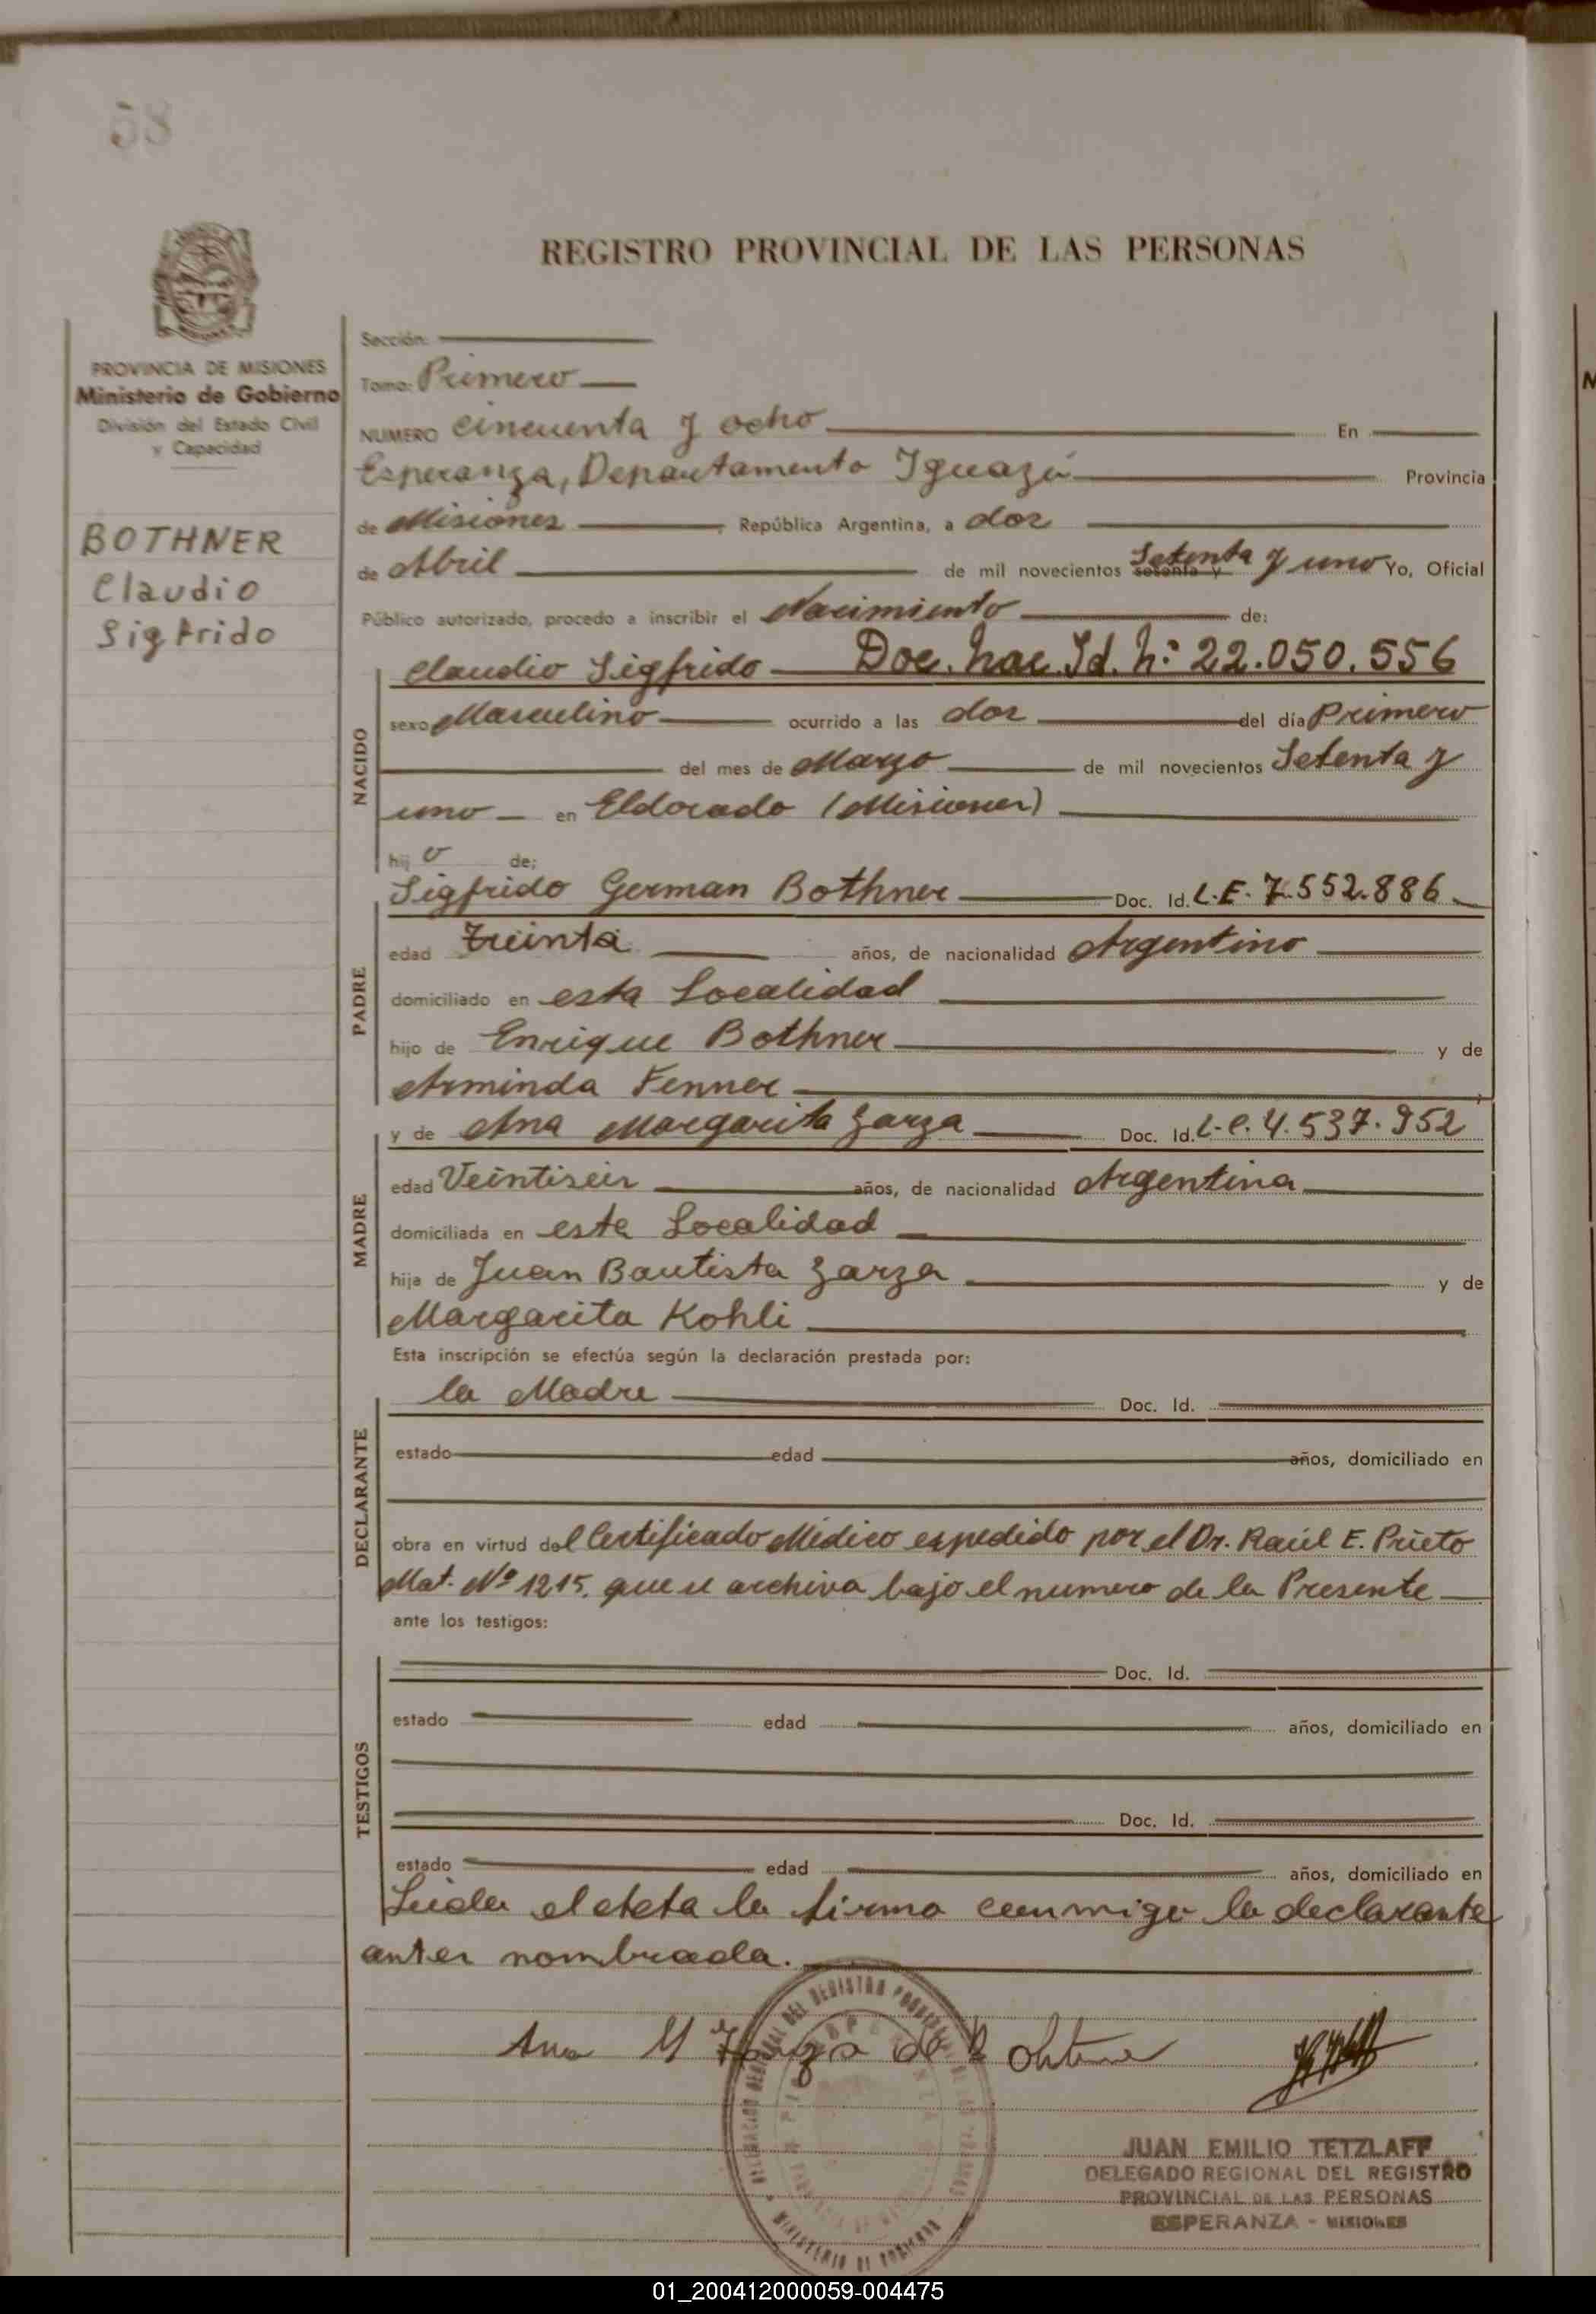 58
REGISTRO PROVINCIAL DE LAS PERSONAS
PROVINCIA DE MISIONES
Ministerio de Gobierno
División del Estado Civil
y Capacidad
BOTHNER
Claudio
Sigfrido
Sección:
Tomo: Primero
NUMERO cincuenta y ocho En
Esperanza, Departamento Iguazú Provincia
de Misiones, República Argentina, a dos
de Abril de mil novecientos sesenta y Setenta y uno Yo, Oficial
Público autorizado, procedo a inscribir el Nacimiento de:
Claudio Sigfrido Doc. Nac. Id. N: 22.050.556
NACIDO
sexo Masculino ocurrido a las dos del día Primero
del mes de Marzo de mil novecientos Setenta y
uno en Eldorado (Misiones)
hij o de:
Sigfrido German Bothner Doc. Id. L.E. 7.552.886
PADRE
edad Treinta años, de nacionalidad Argentino
domiciliado en esta Localidad
hijo de Enrique Bothner y de
Arminda Fenner
MADRE
y de Ana Margarita Zarza Doc. Id. L.C. 4.537.952
edad Veintiseis años, de nacionalidad Argentina
domiciliada en esta Localidad
hija de Juan Bautista Zarza y de
Margarita Kohli
Esta inscripción se efectúa según la declaración prestada por:
DECLARANTE
la Madre Doc. Id.
estado edad años, domiciliado en
obra en virtud del Certificado Médico expedido por el Dr. Raúl E. Prieto
Mat. Nº 1215, que se archiva bajo el numero de la Presente
ante los testigos:
TESTIGOS
Doc. Id.
estado edad años, domiciliado en
Doc. Id.
estado edad años, domiciliado en
Leida el Acta la firma conmigo la declarante
antes nombrada.
Ana M Zarza de Bothner
JUAN EMILIO TETZLAFF
DELEGADO REGIONAL DEL REGISTRO
PROVINCIAL DE LAS PERSONAS
ESPERANZA - MISIONES
01_200412000059-004475